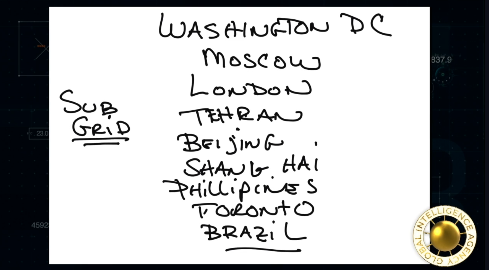 WASHINGTON DC
MOSCOW
LONDON
SUB
GRID
TEHRAN
BEIJING
SHANG HAI
PHILLIPINES
TORONTO
BRAZIL
837.9
20.0
4592
GLOBAL INTELLIGENCE AGENCY